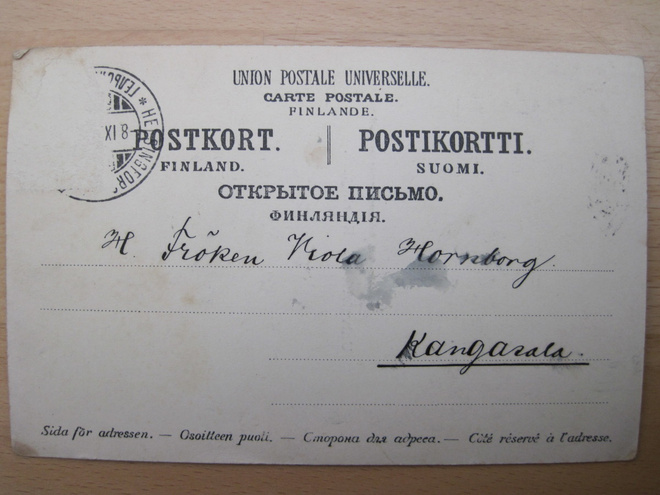 UNION POSTALE UNIVERSELLE.
CARTE POSTALE.
FINLANDE.
POSTKORT. POSTIKORTTI.
FINLAND. SUOMI.
ОТКРЫТОЕ ПИСЬМО.
ФИНЛЯНДІЯ.
HELSINGFORS
8 IX
H. Fröken Viola Hornborg.
Kangasala.
Sida för adressen. — Osoitteen puoli. — Сторона для адреса. — Côté réservé à l'adresse.